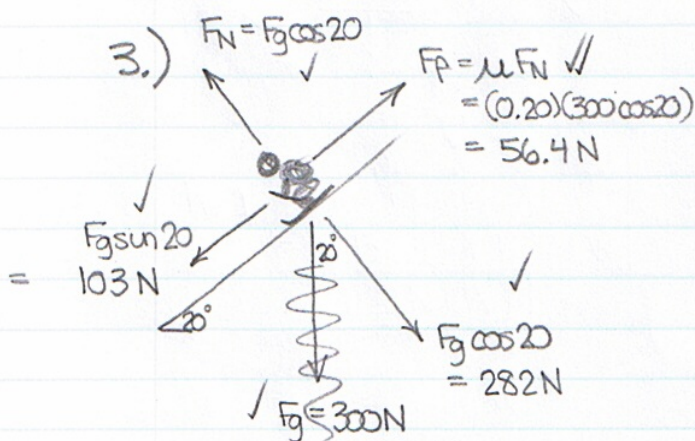 3.)
F_N = Fgcos20
✓
F_f = μF_N ✓✓
= (0.20)(300cos20)
= 56.4N
✓
Fgsin20
= 103N
20°
20°
✓
Fgcos20
= 282N
✓ Fg = 300N